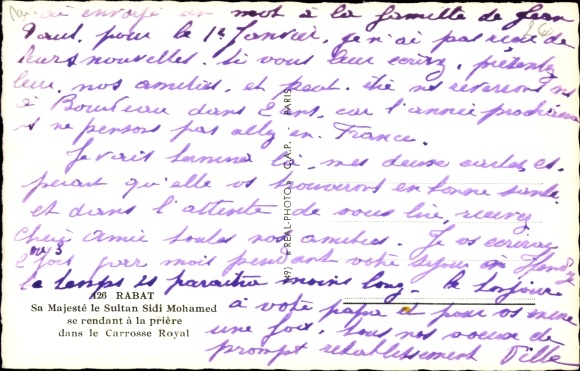 J'ai envoyé un mot à la famille de Jean
Paul, pour le 1er Janvier, je n'ai pas reçu de
leurs nouvelles. Si vous leur écrivez, présentez
leur, nos amitiés, et peut être ns reverrons ns
à Bordeau dans 2 ans, car l'année prochaine
ns ne pensons pas aller en France.
Je vais terminer là, mes deux cartes, es-
perant qu'elle vs trouveront en bonne santé
et dans l'attente de vous lire, recevez
Chère Amie toutes nos amitiés. Je vs écrirai
2 ou 3
fois par mois pendant votre séjour à
le temps vs paraîtra moins long. le bonjour
à votre papa et pour vs même
une fois, tous nos voeux de
prompt rétablissement
126 RABAT
Sa Majesté le Sultan Sidi Mohamed
se rendant à la prière
dans le Carrosse Royal
(49) "REAL-PHOTO" C.A.P. - PARIS